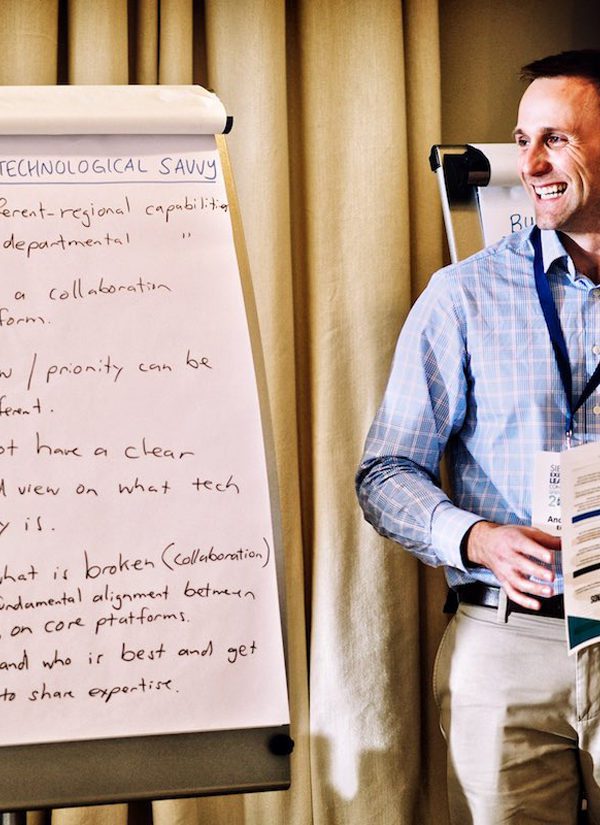 TECHNOLOGICAL SAVVY
ferent-regional capabilities
departmental "
a collaboration
form.
w / priority can be
ferent.
ot have a clear
d view on what tech
y is.
what is broken (collaboration)
undamental alignment between
, on core ptatforms.
and who is best and get
to share expertise.
Bu
SIE
EXE
LEA
CON
2
And